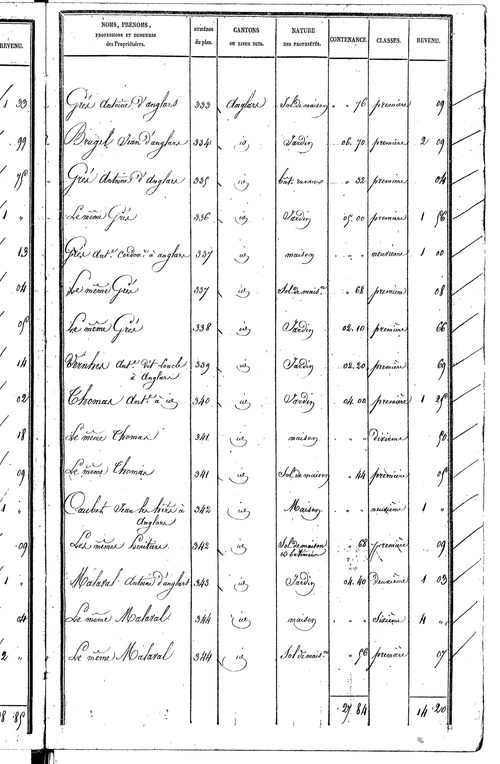 REVENU.
33
99
75
1 "
13
04
05
14
02
18
09
1 "
09
1 "
04
2 "
8 85
NOMS, PRENOMS, PROFESSIONS ET DEMEURES des Propriétaires. NUMÉROS du plan. CANTONS OU LIEUX DITS. NATURE DES PROPRIÉTÉS. CONTENANCE. CLASSES. REVENU.
Grés Antoine d'anglars 333 Anglars Sol de maison " " 76 première 09
Brugel Jean d'anglars 334 id Jardin 06. 70 première 2 09
Grés Antoine d'Anglars 335 id bât. ruraux " 32 première 04
Le même Grés 336 id Jardin 05. 00 première 1 56
Grés Ant.ne Cordon.r à anglars 337 id maison " " " neuvieme 1 00
Le même Grés 337 id Sol de mais.on " 68 première 08
Le même Grés 338 id Jardin 02. 10 première 66
Vernhes Ant.ne dit
à Anglars 339 id Jardin 02. 20 première 69
Thomas Ant.ne à id 340 id Jardin 04. 00 première 1 25
Le même Thomas 341 id maison " " dixième 50
Le même Thomas 341 id Sol de maison " 44 première 05
Caubet Jean les hérs à
Anglars 342 id Maison " " neuvième 1 "
Les mêmes héritiers 342 id Sol de maison
et batimens 68 première 09
Malaval Antoine d'anglars 343 id Jardin 04. 40 Deuxième 1 03
Le même Malaval 344 id maison " " sixième 4 "
Le même Malaval 344 id Sol de mais.on " 56 première 07
27 84 14 20